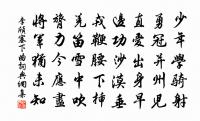 少年學騎射
勇冠并州兒
直愛出身早
邊功沙漠垂
戎鞭腰下插
羌笛雪中吹
膂力今應盡
將軍猶未知
李頎塞下曲詞典網書